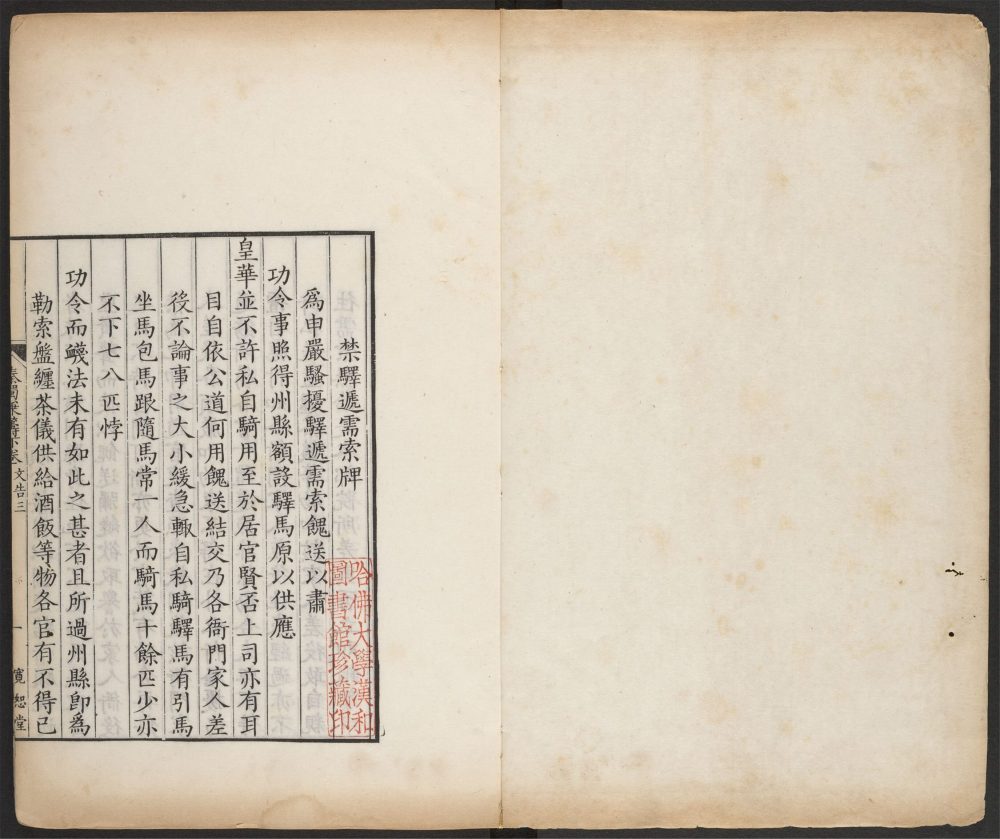 禁驛遞需索牌
為申嚴騷擾驛遞需索餽送以肅
功令事照得州縣額設驛馬原以供應
皇華並不許私自騎用至於居官賢否上司亦有耳
目自依公道何用餽送結交乃各衙門家人差
役不論事之大小緩急輙自私騎驛馬有引馬
坐馬包馬跟隨馬常一人而騎馬十餘匹少亦
不下七八匹悖
功令而衊法未有如此之甚者且所過州縣卽為
勒索盤纏茶儀供給酒飯等物各官有不得已
文告三
一
寬恕堂
哈佛大學漢和
圖書館珍藏印